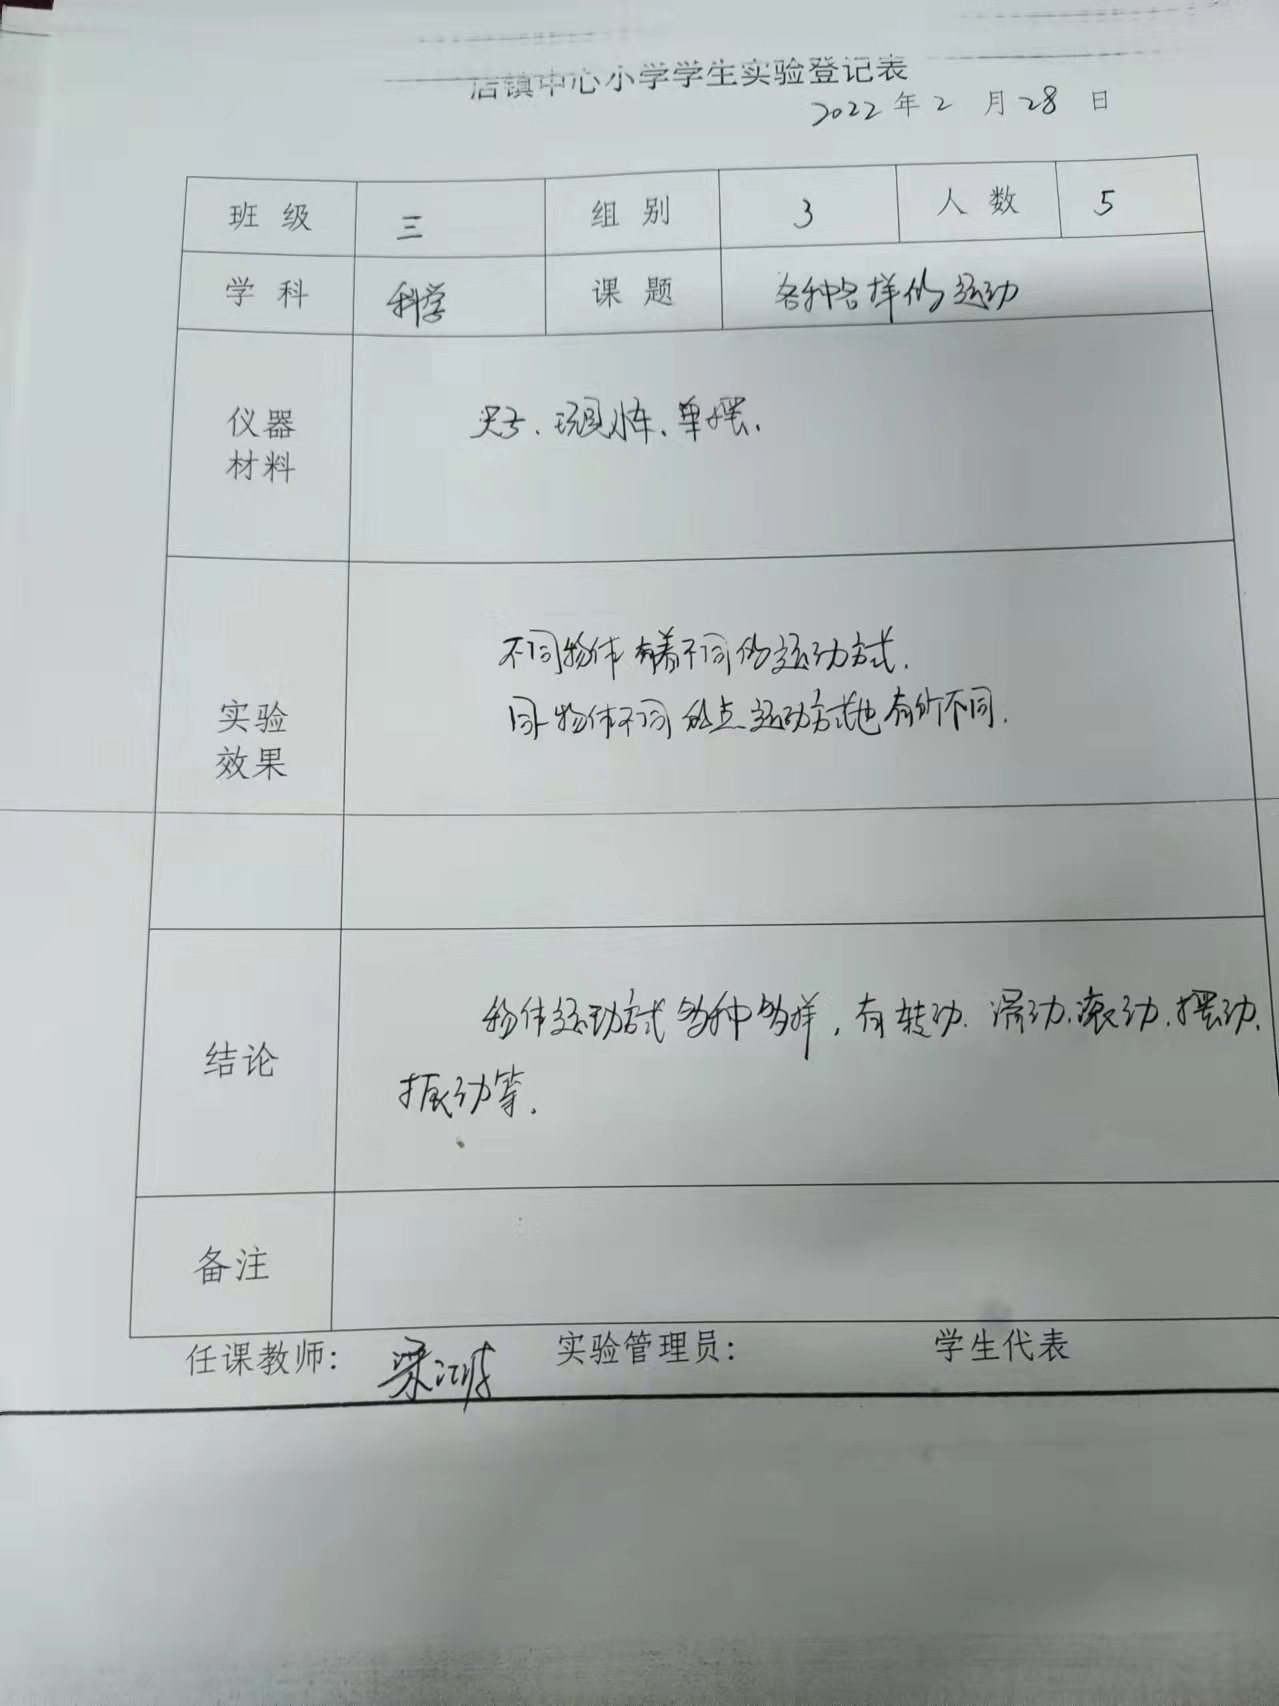 店镇中心小学学生实验登记表
2022年2月28日
班级 三 组别 3 人数 5
学科 科学 课题 各种各样的运动
仪器
材料
尺子、玩具小车、单摆.
不同物体有着不同的运动方式.
同一物体不同的点运动方式也有所不同.
实验
效果
物体运动方式多种多样,有转动、滑动、滚动、摆动、
结论
振动等.
备注
任课教师: 实验管理员: 学生代表